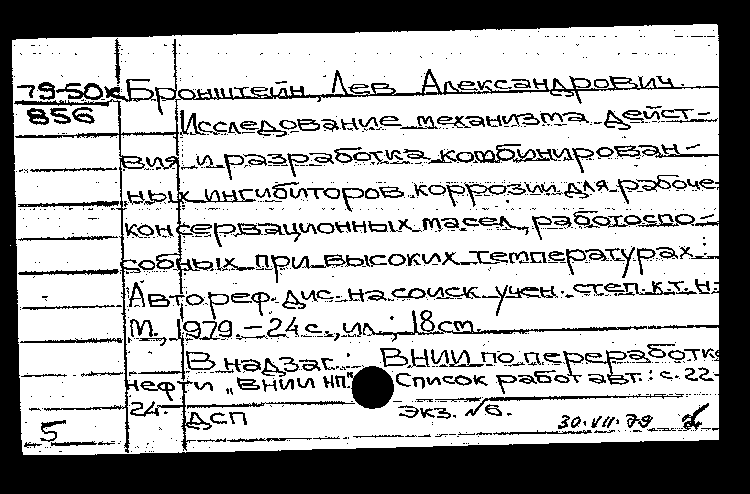 79-50к Бронштейн, Лев Александрович.
856 Исследование механизма дейст-
вия и разработка комбинирован-
ных ингибиторов коррозии для рабоче-
консервационных масел, работоспо-
собных при высоких температурах:
Автореф. дис. на соиск учен. степ. к.т.н.
М., 1979. – 24 с., ил.; 18 см.
В надзаг.: ВНИИ по переработке
нефти „ВНИИ НП". Список работ авт.: с. 22-
24. ДСП Экз. № 6. 30.VII.79
5